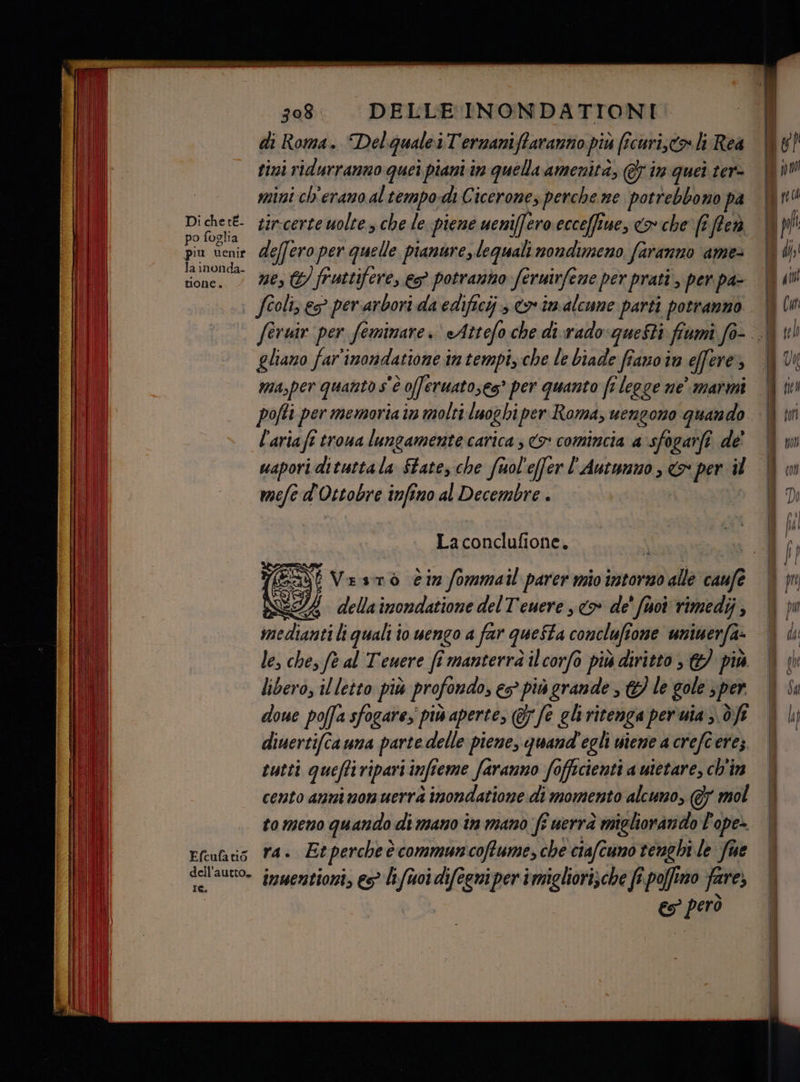 308 DELLE INONDATIONI
di Roma. Del quale i Ternani ſtaranno più ſicuri, & li Rea
tini ridurranno quei piani in quella amenità, & in quei ter-
mini ch'erano al tempo di Cicerone, perche ne potrebbono pa
tir certe uolte, che le piene ueniſſero ecceſſiue, & che ſi ſten
deſſero per quelle pianure, lequali nondimeno ſaranno ame-
ne, & fruttifere, & potranno ſeruirſene per prati, per pa-
ſcoli, & per arbori da edificij, & in alcune parti potranno
ſeruir per ſeminare. Atteſo che di rado queſti fiumi ſo-
gliano far'inondatione in tempi, che le biade ſiano in eſſere,
ma, per quanto s'è oſſeruato, & per quanto ſi legge ne' marmi
poſti per memoria in molti luoghi per Roma, uengono quando
l'aria ſi troua lungamente carica, & comincia a sfogarſi de'
uapori di tutta la ſtate, che ſuol'eſſer l'Autunno, & per il
meſe d'Ottobre inſino al Decembre.
Di che tẽ-
po ſoglia
piu uenir
la inonda-
tione.
La concluſione.
Vestò è in ſomma il parer mio intorno alle cauſe
della inondatione del Teuere, & de' ſuoi rimedij,
medianti li quali io uengo a far queſta concluſione uniuerſa-
le, che, ſe al Teuere ſi manterrà il corſo più diritto, & più
libero, il letto più profondo, & più grande, & le gole, per
doue poſſa sfogare, più aperte, & ſe gli ritenga per uia, ò ſi
diuertiſca una parte delle piene, quand'egli uiene a creſcere;
tutti queſti ripari inſieme ſaranno ſofficienti a uietare, ch'in
cento anni non uerrà inondatione di momento alcuno, & mol
to meno quando di mano in mano ſi uerrà migliorando l'ope-
ra. Et perche è commun coſtume, che ciaſcuno tenghi le ſue
inuentioni, & li ſuoi diſegni per i migliori, che ſi poſſino fare,
Eſcuſatiõ
dell'autto-
re.
& però